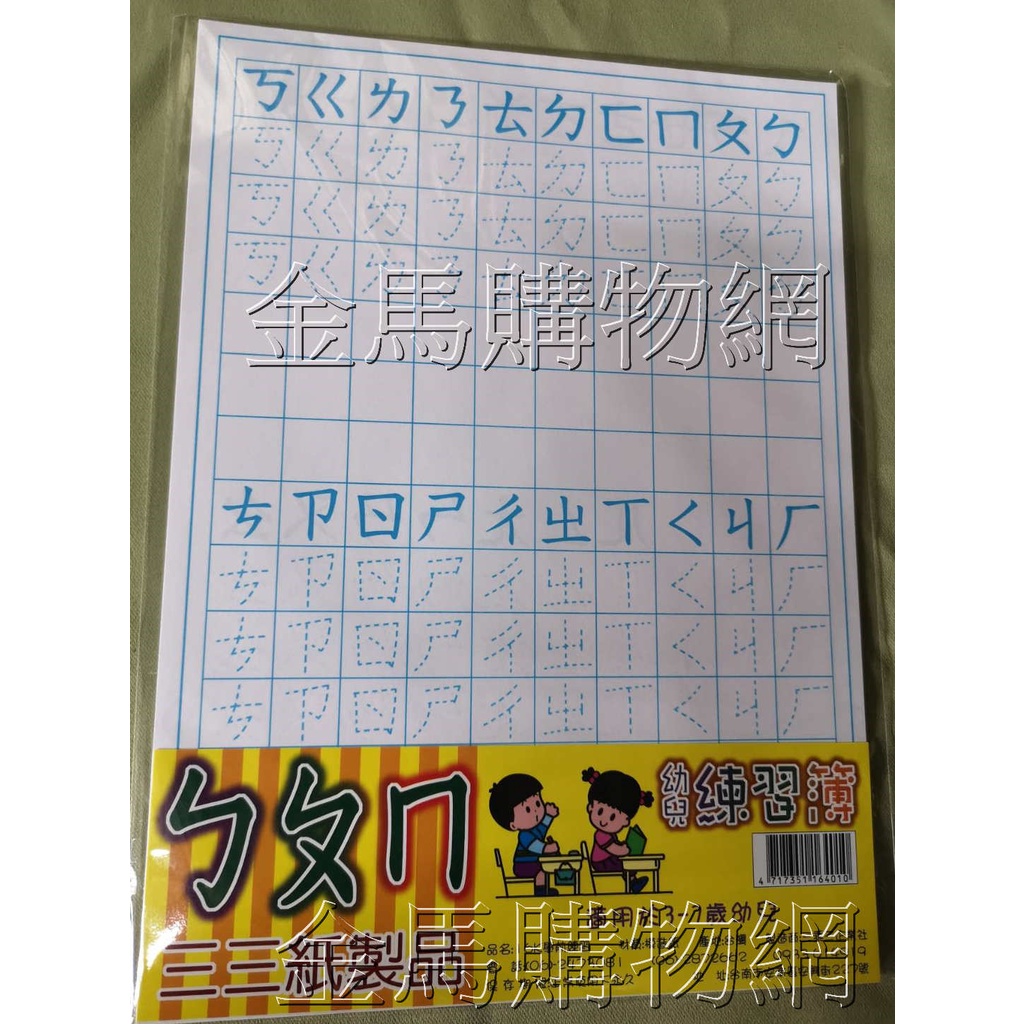 ㄎ ㄍ ㄌ ㄋ ㄊ ㄉ ㄈ ㄇ ㄆ ㄅ
ㄎ ㄍ ㄌ ㄋ ㄊ ㄉ ㄈ ㄇ ㄆ ㄅ
ㄎ ㄍ ㄌ ㄋ ㄊ ㄉ ㄈ ㄇ ㄆ ㄅ
ㄎ ㄍ ㄌ
金馬購物網
ㄘ ㄗ ㄖ ㄕ ㄔ ㄓ ㄒ ㄑ ㄐ ㄏ
ㄘ ㄗ ㄖ ㄕ ㄔ ㄓ ㄒ ㄑ ㄐ ㄏ
ㄘ ㄗ ㄖ ㄕ ㄔ ㄓ ㄒ ㄑ ㄐ ㄏ
ㄘ ㄗ ㄖ ㄕ ㄔ ㄓ ㄒ ㄑ ㄐ ㄏ
ㄅㄆㄇ
幼兒練習簿
4 717351 164010
適用於3-7歲幼兒
金馬購物網
三三紙製品
品名: